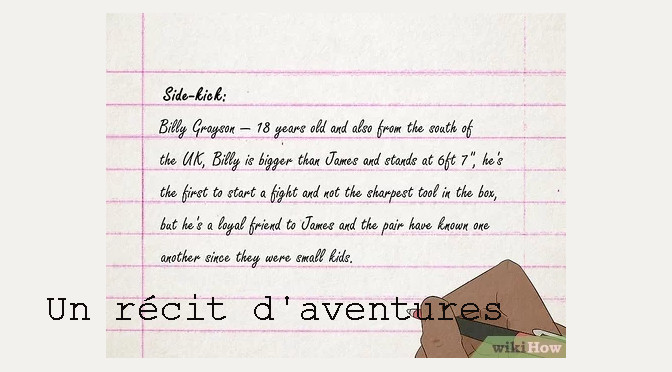 Side-kick:
Billy Grayson – 18 years old and also from the south of
the UK, Billy is bigger than James and stands at 6ft 7", he's
the first to start a fight and not the sharpest tool in the box,
but he's a loyal friend to James and the pair have known one
another since they were small kids.
Un récit d'aventures
wikiHow